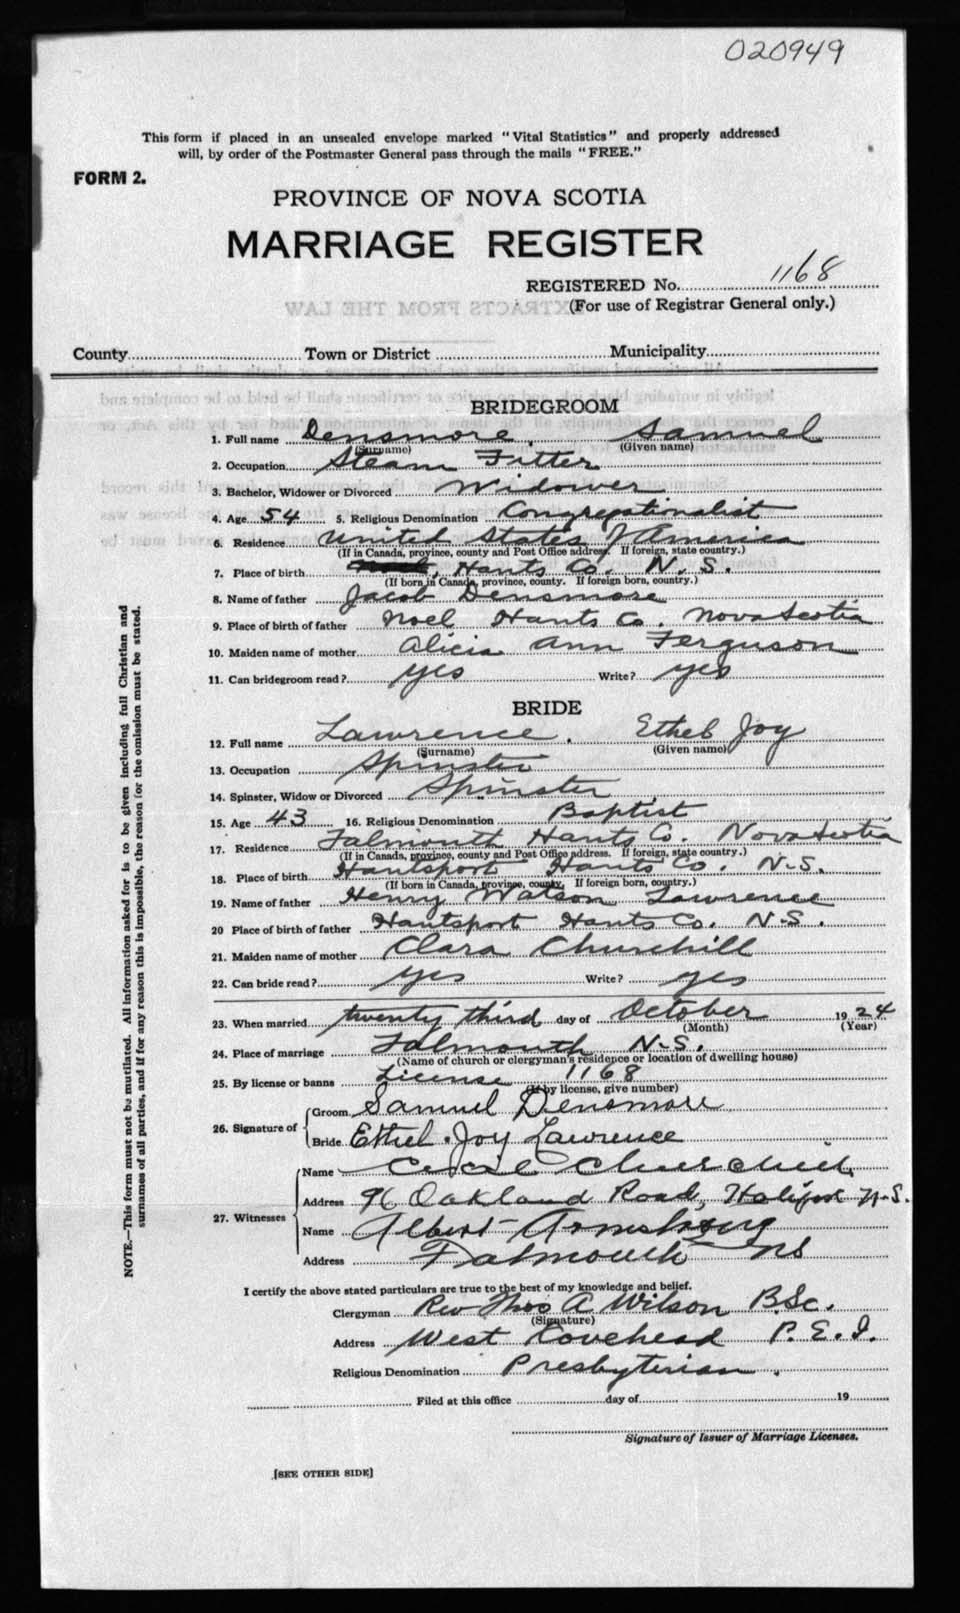 020949
This form if placed in an unsealed envelope marked "Vital Statistics" and properly addressed
will, by order of the Postmaster General pass through the mails "FREE."
FORM 2.
PROVINCE OF NOVA SCOTIA
MARRIAGE REGISTER
REGISTERED No. 1168
(For use of Registrar General only.)
County Town or District Municipality
BRIDEGROOM
1. Full name Densmore, Samuel
(Surname) (Given name)
2. Occupation Steam Fitter
3. Bachelor, Widower or Divorced Widower
4. Age 54 5. Religious Denomination Congregationalist
6. Residence United States of America
(If in Canada, province, county and Post Office address. If foreign, state country.)
7. Place of birth Hants Co. N. S.
(If born in Canada, province, county. If foreign born, country.)
8. Name of father Jacob Densmore
9. Place of birth of father Noel Hants Co. Nova Scotia
10. Maiden name of mother Alicia Ann Ferguson
11. Can bridegroom read? yes Write? yes
BRIDE
12. Full name Lawrence. Ethel Joy
(Surname) (Given name)
13. Occupation Spinster
14. Spinster, Widow or Divorced Spinster
15. Age 43 16. Religious Denomination Baptist
17. Residence Falmouth Hants Co. Nova Scotia
(If in Canada, province, county and Post Office address. If foreign, state country.)
18. Place of birth Hantsport Hants Co. N.S.
(If born in Canada, province, county. If foreign born, country.)
19. Name of father Henry Watson Lawrence
20 Place of birth of father Hantsport Hants Co. N.S.
21. Maiden name of mother Clara Churchill
22. Can bride read? yes Write? yes
23. When married twenty third day of October 1924
(Month) (Year)
24. Place of marriage Falmouth N.S.
(Name of church or clergyman's residence or location of dwelling house)
25. By license or banns License 1168
(If by license, give number)
26. Signature of Groom Samuel Densmore
Bride Ethel Joy Lawrence
27. Witnesses Name Cecil Churchill
Address 96 Oakland Road, Halifax N.S.
Name Albert Armstrong
Address Falmouth NS
I certify the above stated particulars are true to the best of my knowledge and belief.
Clergyman Rev Thos A Wilson B.Sc.
(Signature)
Address West Covehead P.E.I.
Religious Denomination Presbyterian.
Filed at this office day of 19
Signature of Issuer of Marriage Licenses.
[SEE OTHER SIDE]
NOTE.—This form must not be mutilated. All information asked for is to be given including full Christian and
surnames of all parties, and if for any reason this is impossible, the reason for the omission must be stated.